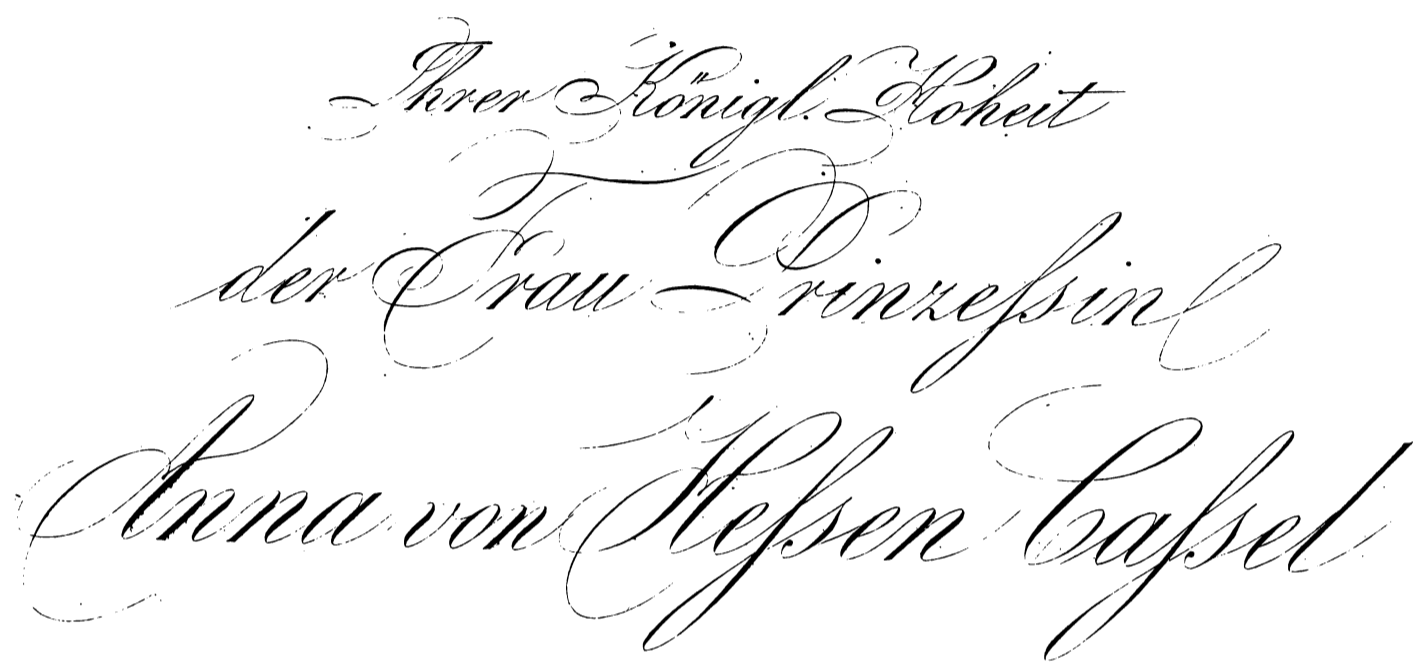 Ihrer Königl. Hoheit
der Frau Prinzeſsin
Anna von Heſsen Caſsel